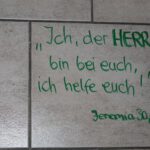 „Ich, der HERR
bin bei euch,
ich helfe euch!"
Jeremia 30,